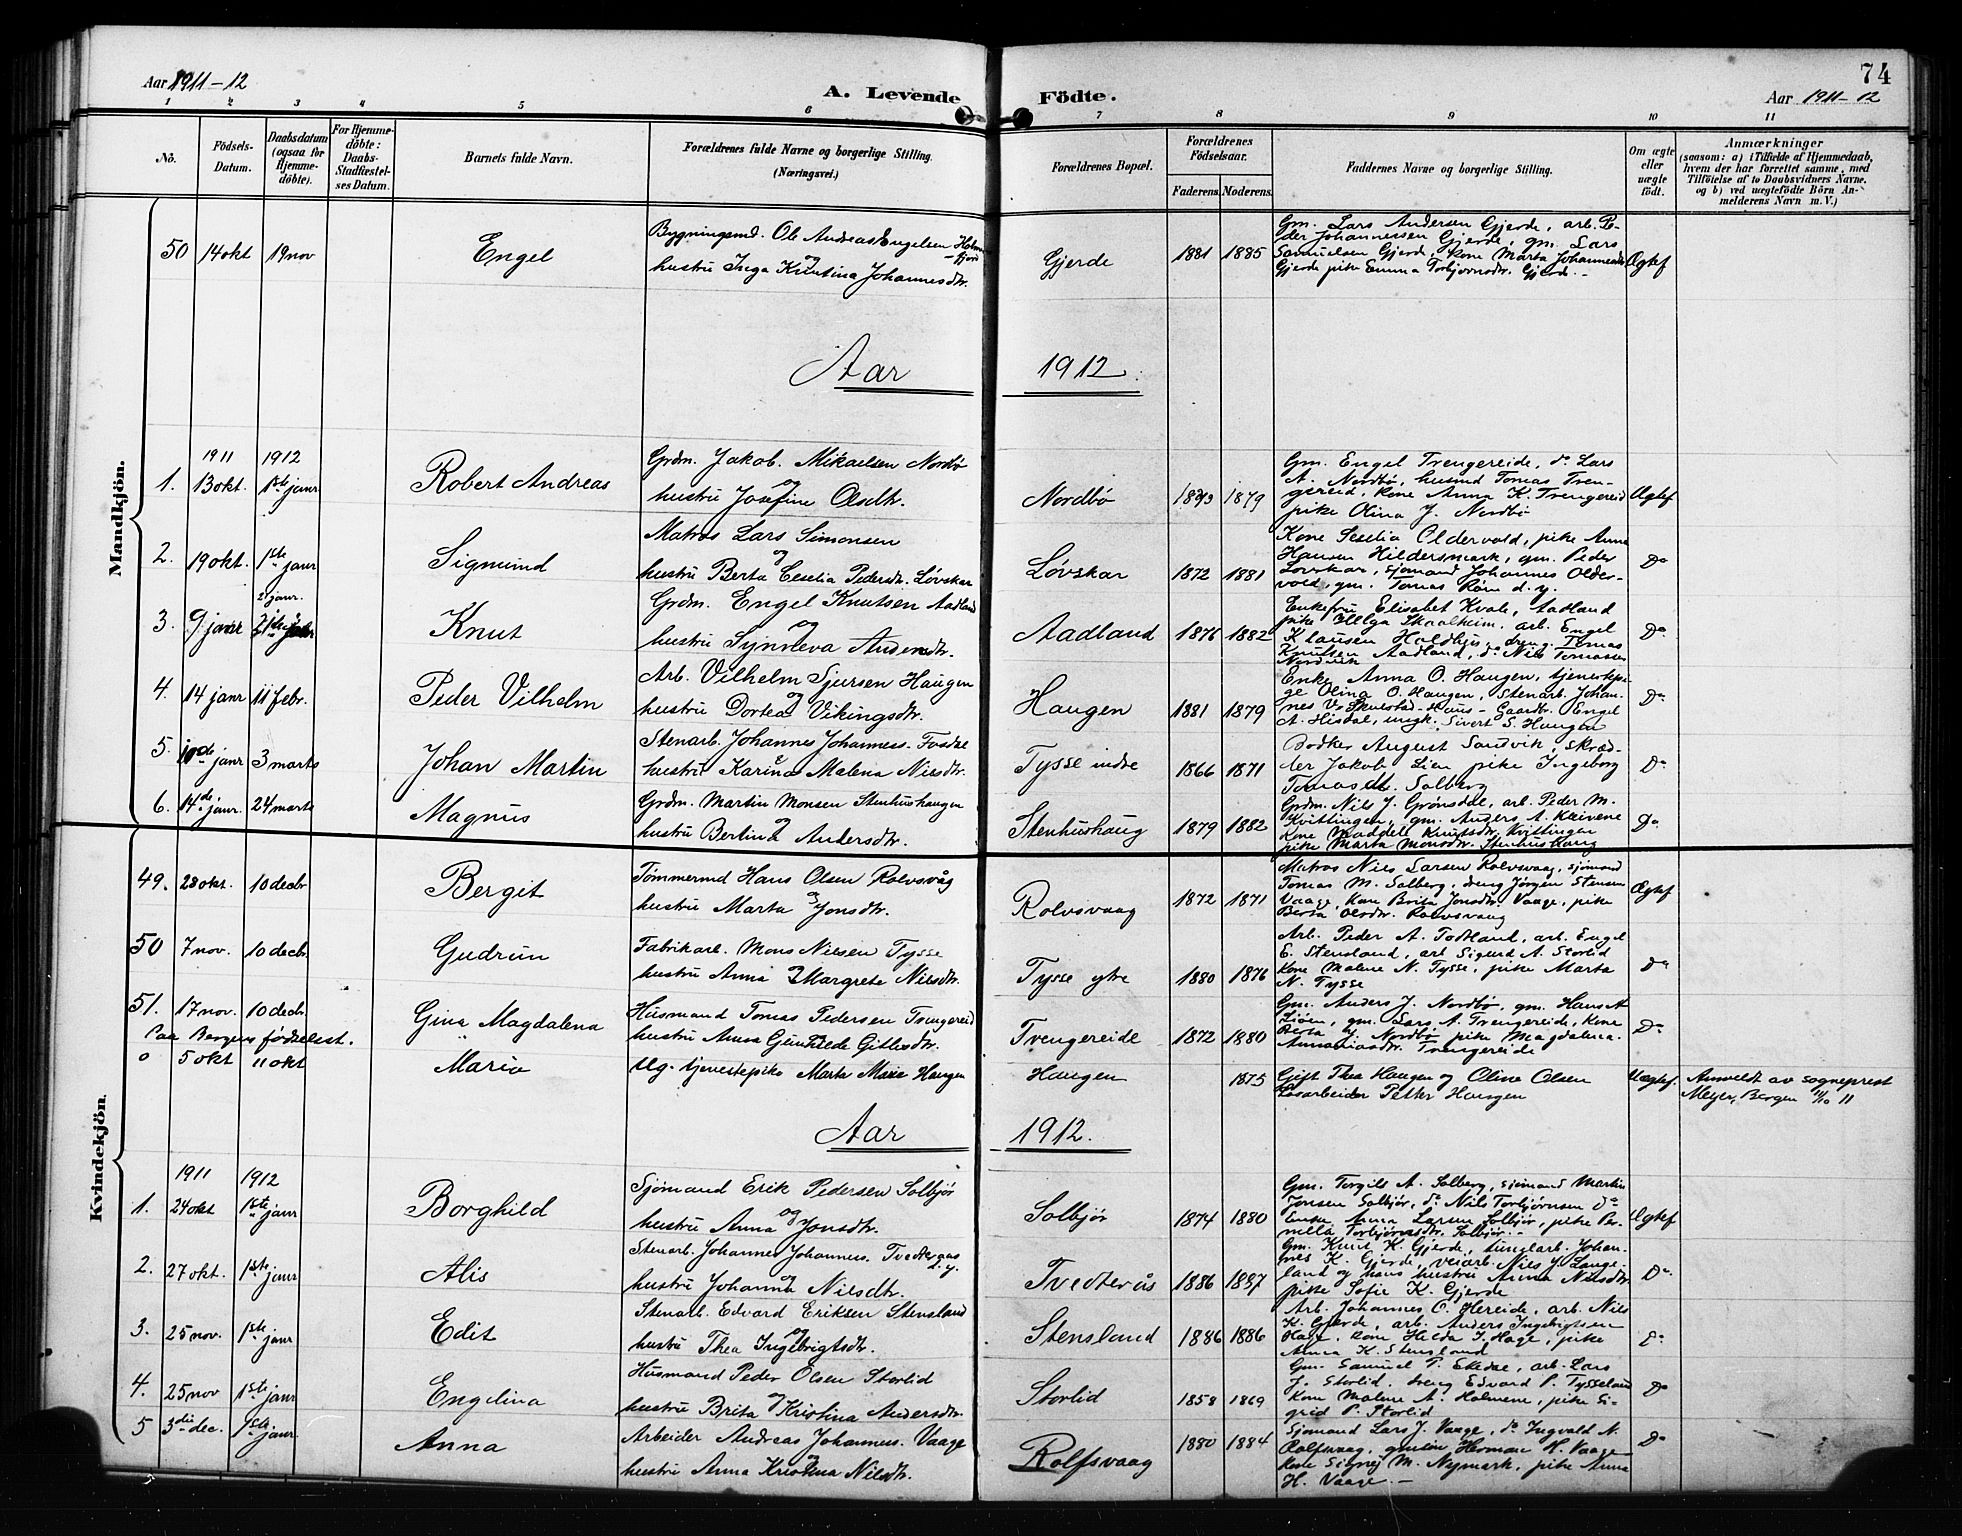 Aar 1911-12
A. Levende
Födte.
74
Aar 1911-12
1 2 3 4 5 6 7 8 9 10 11
No.
Födsels-
Datum.
Daabsdatum
(ogsaa for
Hjemme-
döbte).
For Hjemme-
döbte:
Daabs-
Stadfæstel-
ses Datum.
Barnets fulde Navn.
Forældrenes fulde Navne og borgerlige Stilling.
(Næringsvei.)
Forældrenes Bopæl.
Forældrenes
Födselsaar.
Faderens. Moderens.
Faddernes Navne og borgerlige Stilling.
Om ægte
eller
uægte
födt.
Anmærkninger
(saasom: a) i Tilfælde af Hjemmedaab,
hvem der har forrettet samme, med
Tilföielse af to Daabsvidners Navne,
og b) ved uægtefödte Börn An-
melderens Navn m. V.)
Mandkjön.
50 14 okt 19 nov Engel
Bygningsmd. Ole Andreas Engelsen
og
hustru Inga Knutina Johannesdtr.
Gjerde 1881 1885
Gm. Lars Andersen Gjerde, arb. Pe-
der Johannessen Gjerde, gm. Lars
Samuelsen Gjerde, kone Marta Johannesdtr
Gjerde pike Emma Torbjørnsdtr. Gjerde.-
Ægtef
Aar 1912.
1911 1912
1. 13 okt. 1ste janr Robert Andreas
Grdm. Jakob Mikaelsen Nordbø
og
hustru Josefine Olsdtr.
Nordbø 1879
Gm. Engel Trengereide, do Lars
A. Nordbø, husmd Tomas Tren-
gereid, kone Anna K. Trengereid
pike Olina J. Nordbø
Ægtef
2. 19 okt. 1ste janr Sigmund
Matros Lars Simonsen
og
hustru Berta Cecelia Pedersdtr. Løvskar
Løvskar 1872 1881
Kone Sesilia Oldervold, pike Anna
Hansen Hildersmark, gm. Peder
Løvskar, sjømand Johannes Older-
vold, gm. Tomas d. y.
Do
3. 9 janr 2 janr. Knut
Grdm. Engel Knutsen Aadland
og
hustru Synneva Andersdtr.
Aadland 1876 1882
Enkefru Elisabet Kvale, Aadland
pike Helga Skaalheim, arb. Engel
Klausen Holdhus, dreng Tomas
Knutsen Aadland, do Nils Tomassen
Nordvik
Do
4. 14 janr 11 febr. Peder Vilhelm
Arb. Vilhelm Sjursen Haugen
og
hustru Dortea Vikingsdtr.
Haugen 1881 1879
Enke Anna O. Haugen, tjenestepi-
ge Olina O. Haugen, Stenarb. Johan-
nes V. Skulestad-Haus- Gaardbr. Engel
A. Hisdal, ungk. Sivert S. Haugen
Do
5. janr 3 marts Johan Martin
Stenarb. Johannes Johanness. Fosdal
hustru Karina Malena Nilsdtr.
Tysse indre 1866 1871
Bødker August Sandvik, skræd-
der Jakob Lien pike Ingeborg
Tomasdt. Solberg
Do
6. 14de janr. 24 marts Magnus
Grdm. Martin Monsen Stenhushaugen
og
hustru Bertina Andersdtr.
Stenhushaug 1879 1882
Grdm. Nils J. Grønsdal, arb. Peder M.
Kvitlingen, gm. Anders A.
kone Maddeli Knutsdtr. Kvitlingen
pike Marta Monsdtr. Stenhushaug
Do
Kvindekjön.
49. 28 okt. 10 decbr Bergit
Tømmermd Hans Olsen Rolvsvåg
og
hustru Marta Jonsdtr.
Rolvsvaag 1872 1871
Matros Nils Larsen Rolvsvaag, sjømand
Tomas M. Solberg, dreng Jørgen Stensen
Vaage, kone Brita Jonsdtr. Vaage, pike
Berta Olsdtr. Rolvsvaag
Ægtef
50 7 nov. 10 decbr. Gudrun
Fabrikarb. Mons Nilsen Tysse
og
hustru Anna Margrete Nilsdtr.
Tysse ytre 1880 1876
Arb. Peder A. Todland, arb. Engel
E. Stensland, arb Sigurd A. Storlid
kone Malene N. Tysse, pike Marta
N. Tysse
Do
51. 17 nov. 10 decbr. Gina Magdalena
Husmand Tomas Pedersen Trengereid
hustru Anna Gunhilde Gitlesdtr.
Trengereide 1872 1880
Gm. Anders J. Nordbø, gm. Hans A
Liøen, gm. Lars A. Trengereide, kone
Berta J. Nordbø, pike Magdalena
Annaniasdtr. Trengereide
Do
Paa Bergens fødselsst.
0 5 okt 11 okt Maria
Ug. tjenestepike Marta Marie Haugen
Haugen 1875
Gift Thea Haugen og Oline Olsen
Løsarbeider Petter Haugen
Uægtef.
Anmeldt av sogneprest
Meyer, Bergen 11/10 11
Aar 1912.
1911 1912
1. 24 okt 1ste janr Borghild
Sjømand Erik Pedersen Solbjør
og
hustru Anna Jonsdtr.
Solbjør 1874 1880
Gm. Torgils A. Solberg, sjømand Martin
Jonsen Solbjør, do Nils Torbjørnsen Do
Enke Anna Larsen Solbjør, pike Per-
nilla Torbjørnsdtr. Solbjør.-
Ægtef
2. 27 okt. 1ste janr Alis
Stenarb. Johannes Johanness. Tvedteraas
d. y.
og
hustru Johanna Nilsdtr.
Tvedterås 1886 1887
Gm. Knut K. Gjerde, Johan-
nes K. Gjerde, veiarb. Nils J. Lange-
land og hans hustru Anna Nilsdtr
pike Sofie K. Gjerde
Do
3. 25 nov. 1ste janr Edit
Stenarb. Edvard Eriksen Stensland
og
hustru Thea Ingebrigtsdtr.
Stensland 1886 1886
Arb. Johannes O. Hereide, arb. Nils
K. Gjerde, arb. Anders Ingebrigtssen
Hage, kone Hilda J. Hage, pike
Anna K. Stensland
Do
4. 25 nov 1ste janr Engelina
Husmand Peder Olsen Storlid
og
hustru Brita Kristina Andersdtr.
Storlid 1858 1869
Gm. Samuel P. Ekedal, arb. Lars
J. Storlid, dreng Edvard P. Tysseland
kone Malene A. Holmene, pike Si-
grid P. Storlid
Do
5 3die dec. 1ste janr Anna
Arbeider Andreas Johanness. Vaage
og
hustru Anna Kristina Nilsdtr.
Rolfsvaag 1880 1884
Sjømand Lars J. Vaage, do Ingvald N.
Rolfsvaag, Herman H. Vaage
kone Signej M. Nymark, pike Anna
H. Vaage.-
Do